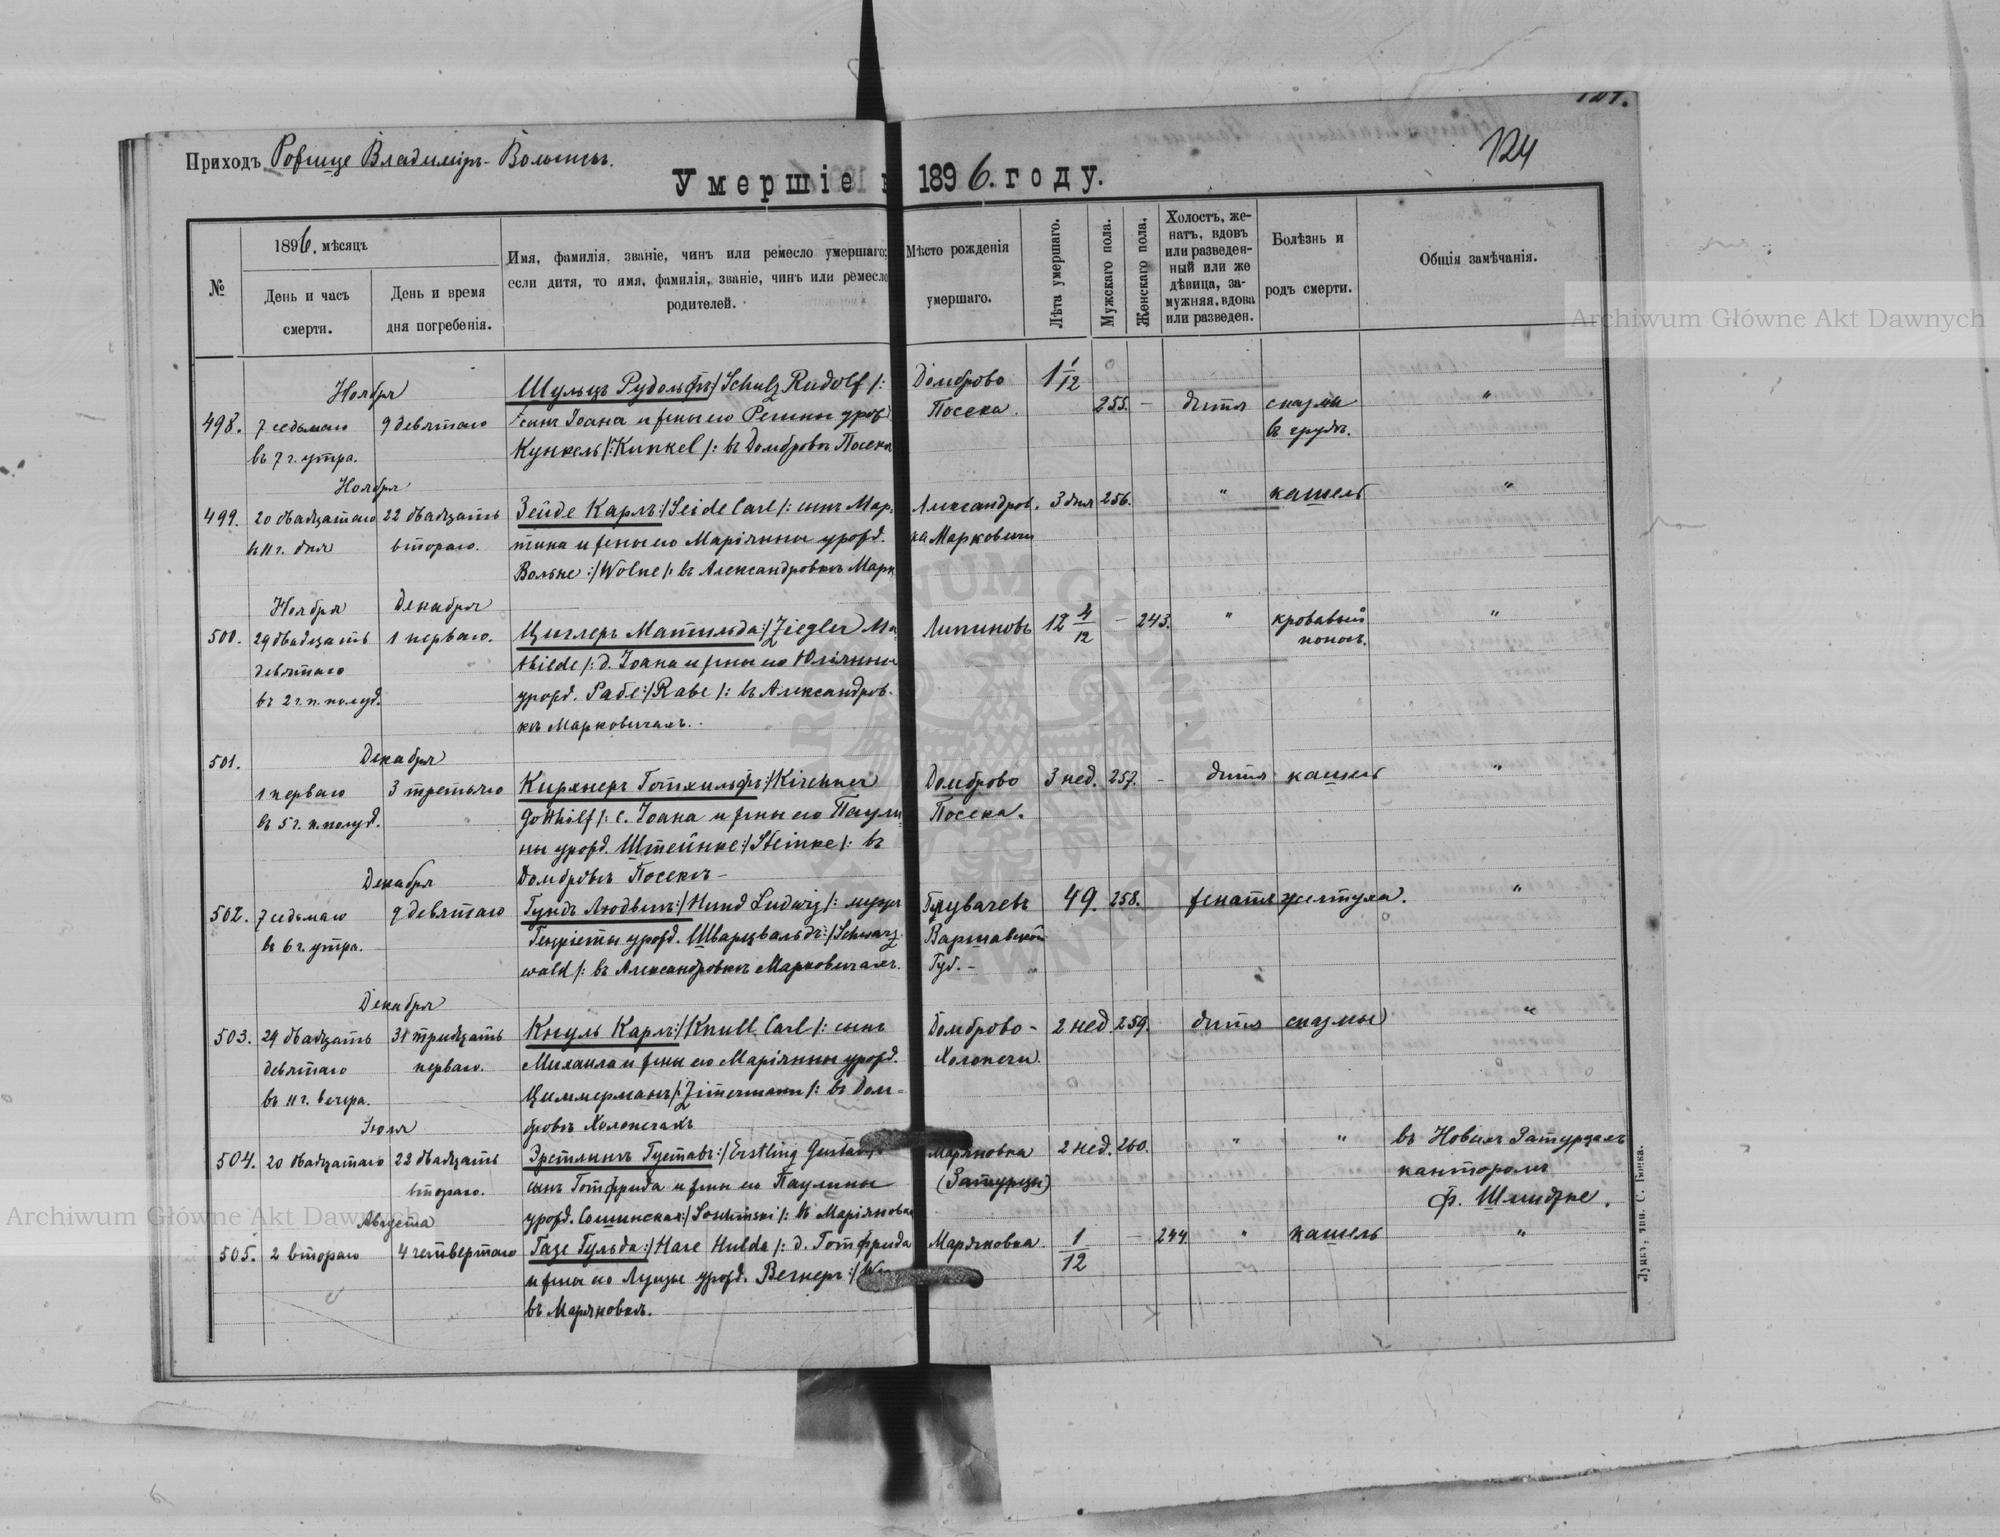 124.
124
Приходъ Рожище Владиміръ-Волынск.
Умершіе 1896. году.
№
1896. мѣсяцъ
День и часъ смерти.
День и время дня погребенія.
Имя, фамилія, званіе, чинъ или ремесло умершаго;
если дитя, то имя, фамилія, званіе, чинъ или ремесло
родителей.
Мѣсто рожденія умершаго.
Лѣта умершаго.
Мужскаго пола.
Женскаго пола.
Холостъ, же-
натъ, вдовъ
или разведен-
ный или же
дѣвица, за-
мужняя, вдова
или разведен.
Болѣзнь и родъ смерти.
Общія замѣчанія.
Ноября
498. 7 седьмаго 9 девятаго Шульцъ Рудольфъ /Schulz Rudolf/: Домброво 1 1/12 255. — дитя спазмы "
въ 7 г. утра. сынъ Іоана и жены его Регины урож. Посека. въ груд.
Кункель /:Kunkel/: въ Домбровѣ Посека
Ноября
499. 20 двадцатаго 22 двадцать Зейде Карлъ:/Seide Carl/: сынъ Мар- Александров- 3 дня 256. " кашель "
въ 11 г. дня втораго. тина и жены его Маріанны урожд. ка Марковичи
Вольне:/Wolne/: въ Александровкѣ Марк
Ноября Декабря
500. 29 двадцать 1 перваго. Циглеръ Матильда:/Ziegler Ma- Липиновъ 12 4/12 — 243. " кровавый "
девятаго thilde/: д. Іоана и жены его Юліанны поносъ.
въ 2 г. п. полуд. урожд. Рабе:/Rabe/: въ Александров-
кѣ Марковичахъ.
501. Декабря
1 перваго 3 третьяго Кирхнеръ Готхильфъ:/Kirchner Домброво 3 нед. 257. - дитя кашель "
въ 5 г. п. полуд. Gotthilf/: с. Іоана и жены его Паули- Посека.
ны урожд. Штейнке:/Steinke/: въ
Домбровѣ Посекѣ —
Декабря
502. 7 седьмаго 9 девятаго Гундъ Людвигъ:/Hund Ludwig/: мужъ 49. 258. женатъ желтуха. "
въ 6 г. утра. Генріеты урожд. Шварцвальдъ:/Schwarz- Варшавской
wald/: въ Александровкѣ Марковичахъ. Губ. —
Декабря
503. 29 двадцать 31 тридцать Кнуль Карлъ:/Knull Carl/: сынъ Домброво- 2 нед. 259. дитя спазмы "
девятаго перваго. Михаила и жены его Маріанны урожд. Холопечи.
въ 11 г. вечера. Циммерманъ/:Zimermann/: въ Дом-
бровѣ Холопечахъ
Іюля
504. 20 двадцатаго 22 двадцать Эрстлингъ Густавъ:/Erstling Gustav Маряновка 2 нед. 260. " " въ Новыхъ Затурцахъ
втораго. сынъ Готфрида и жены его Паулины (Затурцы) канторомъ
урожд. Сошинская:/Soschinski/: въ Маріановкѣ Ф. Шмидтке.
Августа
505. 2 втораго 4 четвертаго Газе Гульда:/Hase Hulda/: д. Готфрида Маряновка. 1/12 — 244 " кашель "
и жены его Луизы урожд. Вегнеръ:/
въ Маряновкѣ.
Луцкъ, тип. С. Бонка.
Archiwum Główne Akt Dawnych
Archiwum Główne Akt Dawnych
ARCHIWUM GŁÓWNE AKT DAWNYCH